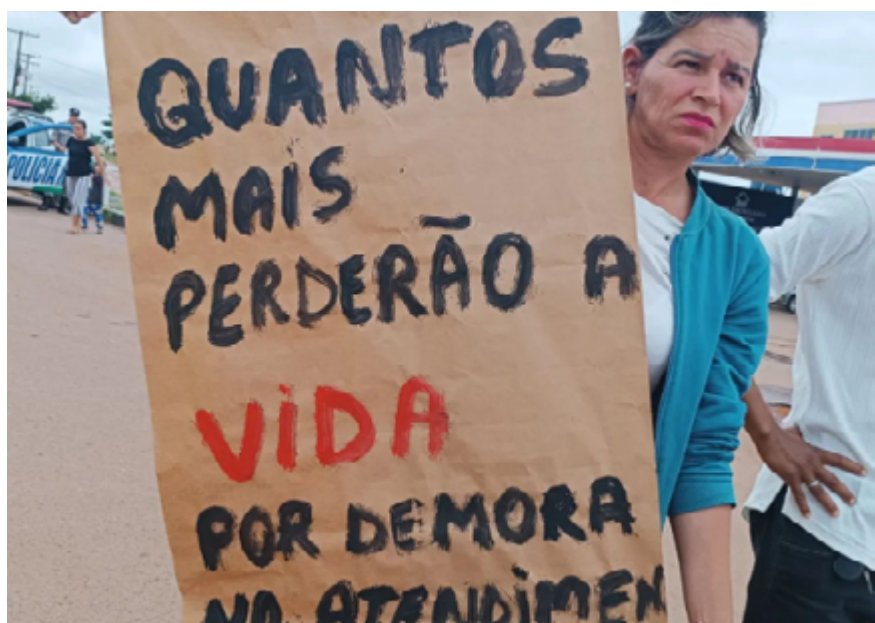 QUANTOS
MAIS
PERDERÃO A
VIDA
POR DEMORA
NO ATENDIMEN
POLICIA